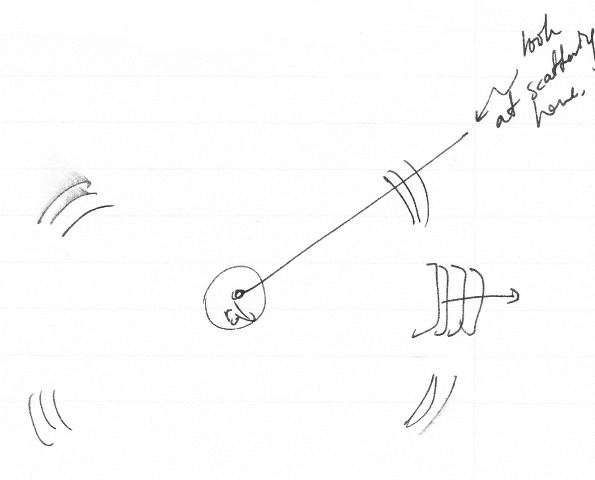 look
at scattering
here.
a